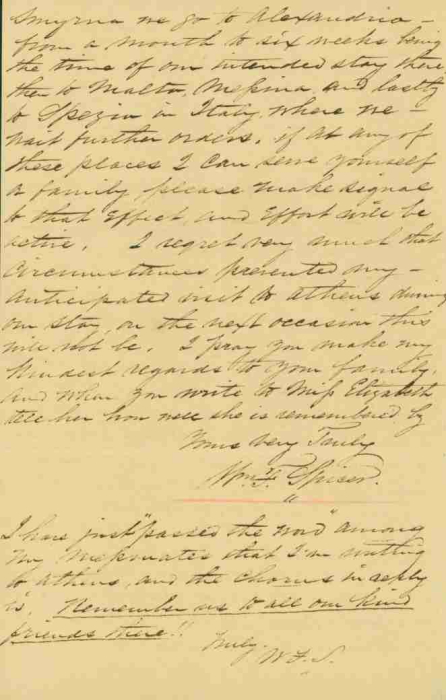 Smyrna we go to Alexandria –
from a month to six weeks being
the time of our intended stay there
then to Malta, Messina, and lastly
to Spezia in Italy, where we –
wait further orders, if at any of
these places I can serve yourself
or family, please make signal
to that Effect, and Effort will be
active. I regret very much that
Circumstances prevented my –
anticipated visit to Athens during
our stay, on the next occasion this
will not be. I pray you make my
kindest regards to your family,
and when you write to Miss Elizabeth
tell her how well she is remembered by
Yours Very Truly
Wm. F. Spicer.
I have just "passed the word" among
my Messmates that I'm writing
to Athens, and the chorus in reply
is, Remember us to all our kind
friends there!!
Truly,
W. F. S.